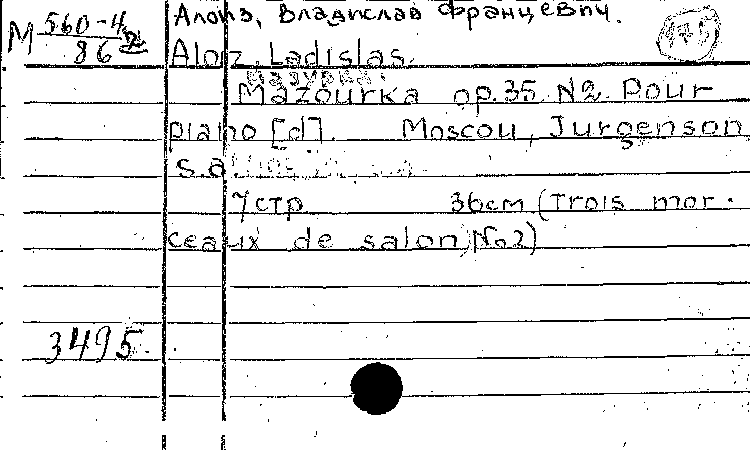 Алоиз, Владислав Францевич.
М 560-4
86
Aloiz, Ladislas.
Mazourka op.35 N2. Pour
piano [d]. Moscou, Jurgenson
s.a.
7стр 36см (Trois mor-
ceaux de salon, No2)
3495